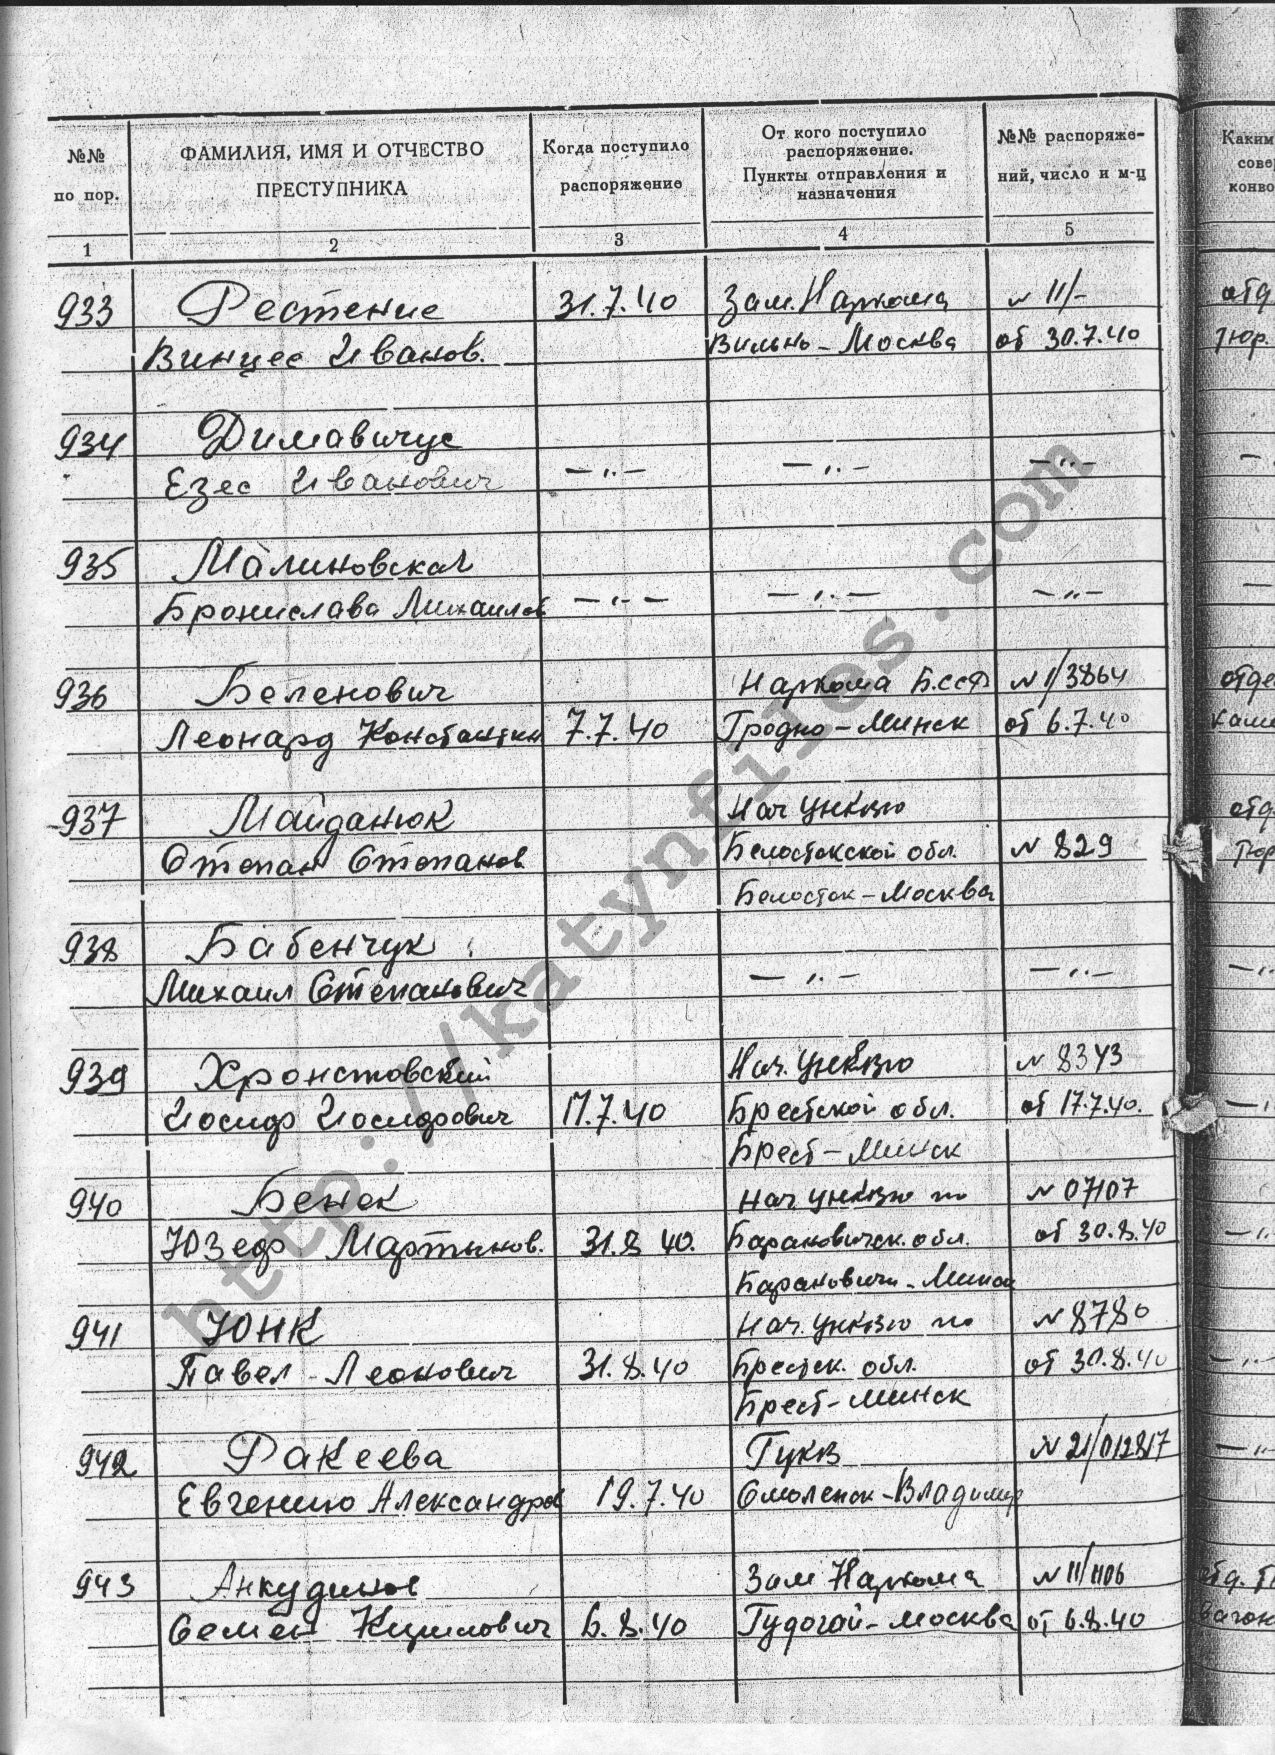 №№ по пор.
ФАМИЛИЯ, ИМЯ И ОТЧЕСТВО ПРЕСТУПНИКА
Когда поступило распоряжение
От кого поступило распоряжение. Пункты отправления и назначения
№№ распоряже-
ний, число и м-ц
Каким
сове
конво
1 2 3 4 5
933 Рестение 31.7.40 Зам. Наркома N 11/-
Винцес Иванов. Вильно - Москва от 30.7.40
934 Димавичус
Езес Иванович — „ — — „ — — „ —
935 Малиновская
Бронислава Михайлов — „ — — „ — — „ —
936 Беленович Наркома БССР N 1/3864
Леонард Константин 7.7.40 Гродно - Минск от 6.7.40
937 Майданюк Нач УНКВД
Степан Степанов Белостокской обл. N 829
Белосток - Москва
938 Бабенчук
Михаил Степанович — „ — — „ —
939 Хроновский Нач. УНКВД N 8343
Иосиф Иосифович 17.7.40 Брестской обл. от 17.7.40.
Брест - Минск
940 Бенек Нач УНКВД по N 07107
Юзеф Мартынов. 31.8 40. Барановичск. обл. от 30.8.40
Барановичи - Минск
941 Юнк Нач. УНКВД по N 8780
Павел Леонович 31.8.40 Брестск. обл. от 30.8.40
Брест - Минск
942 Ракеева ГУКВ N 21/012817
Евгению Александров 19.7.40 Смоленск - Владимир
943 Анкудинов Зам Наркома N 11/1106
Семен Кирилович 6.8.40 Гудогай - Москва от 6.8.40
http://katynfiles.com